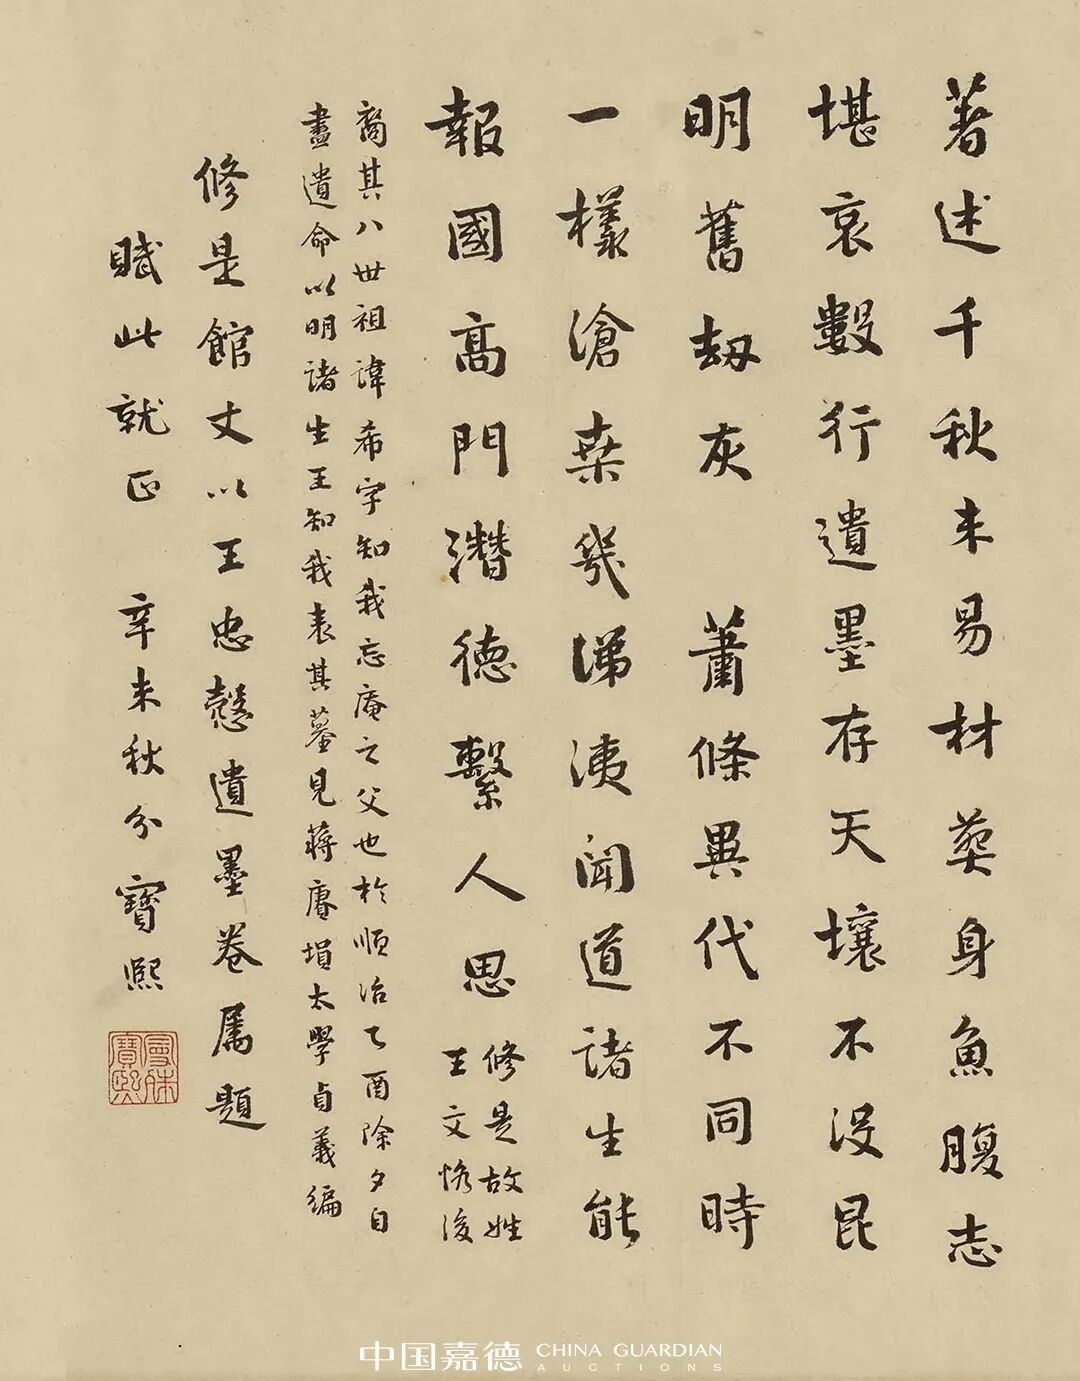 著述千秋未易材葬身魚腹志
堪哀數行遺墨存天壤不沒昆
明舊劫灰　蕭條異代不同時
一樣滄桑幾涕洟聞道諸生能
報國高門潛德繫人思修是故姓
王文恪後
裔其八世祖諱希字知我忘庵之父也於順治乙酉除夕自
盡遺命以明諸生王知我表其墓見蔣賡塤太學貞義編
修是館丈以王忠慤遺墨卷属題
賦此就正　辛未秋分寶熙
寶熙
中国嘉德 CHINA GUARDIAN
AUCTIONS